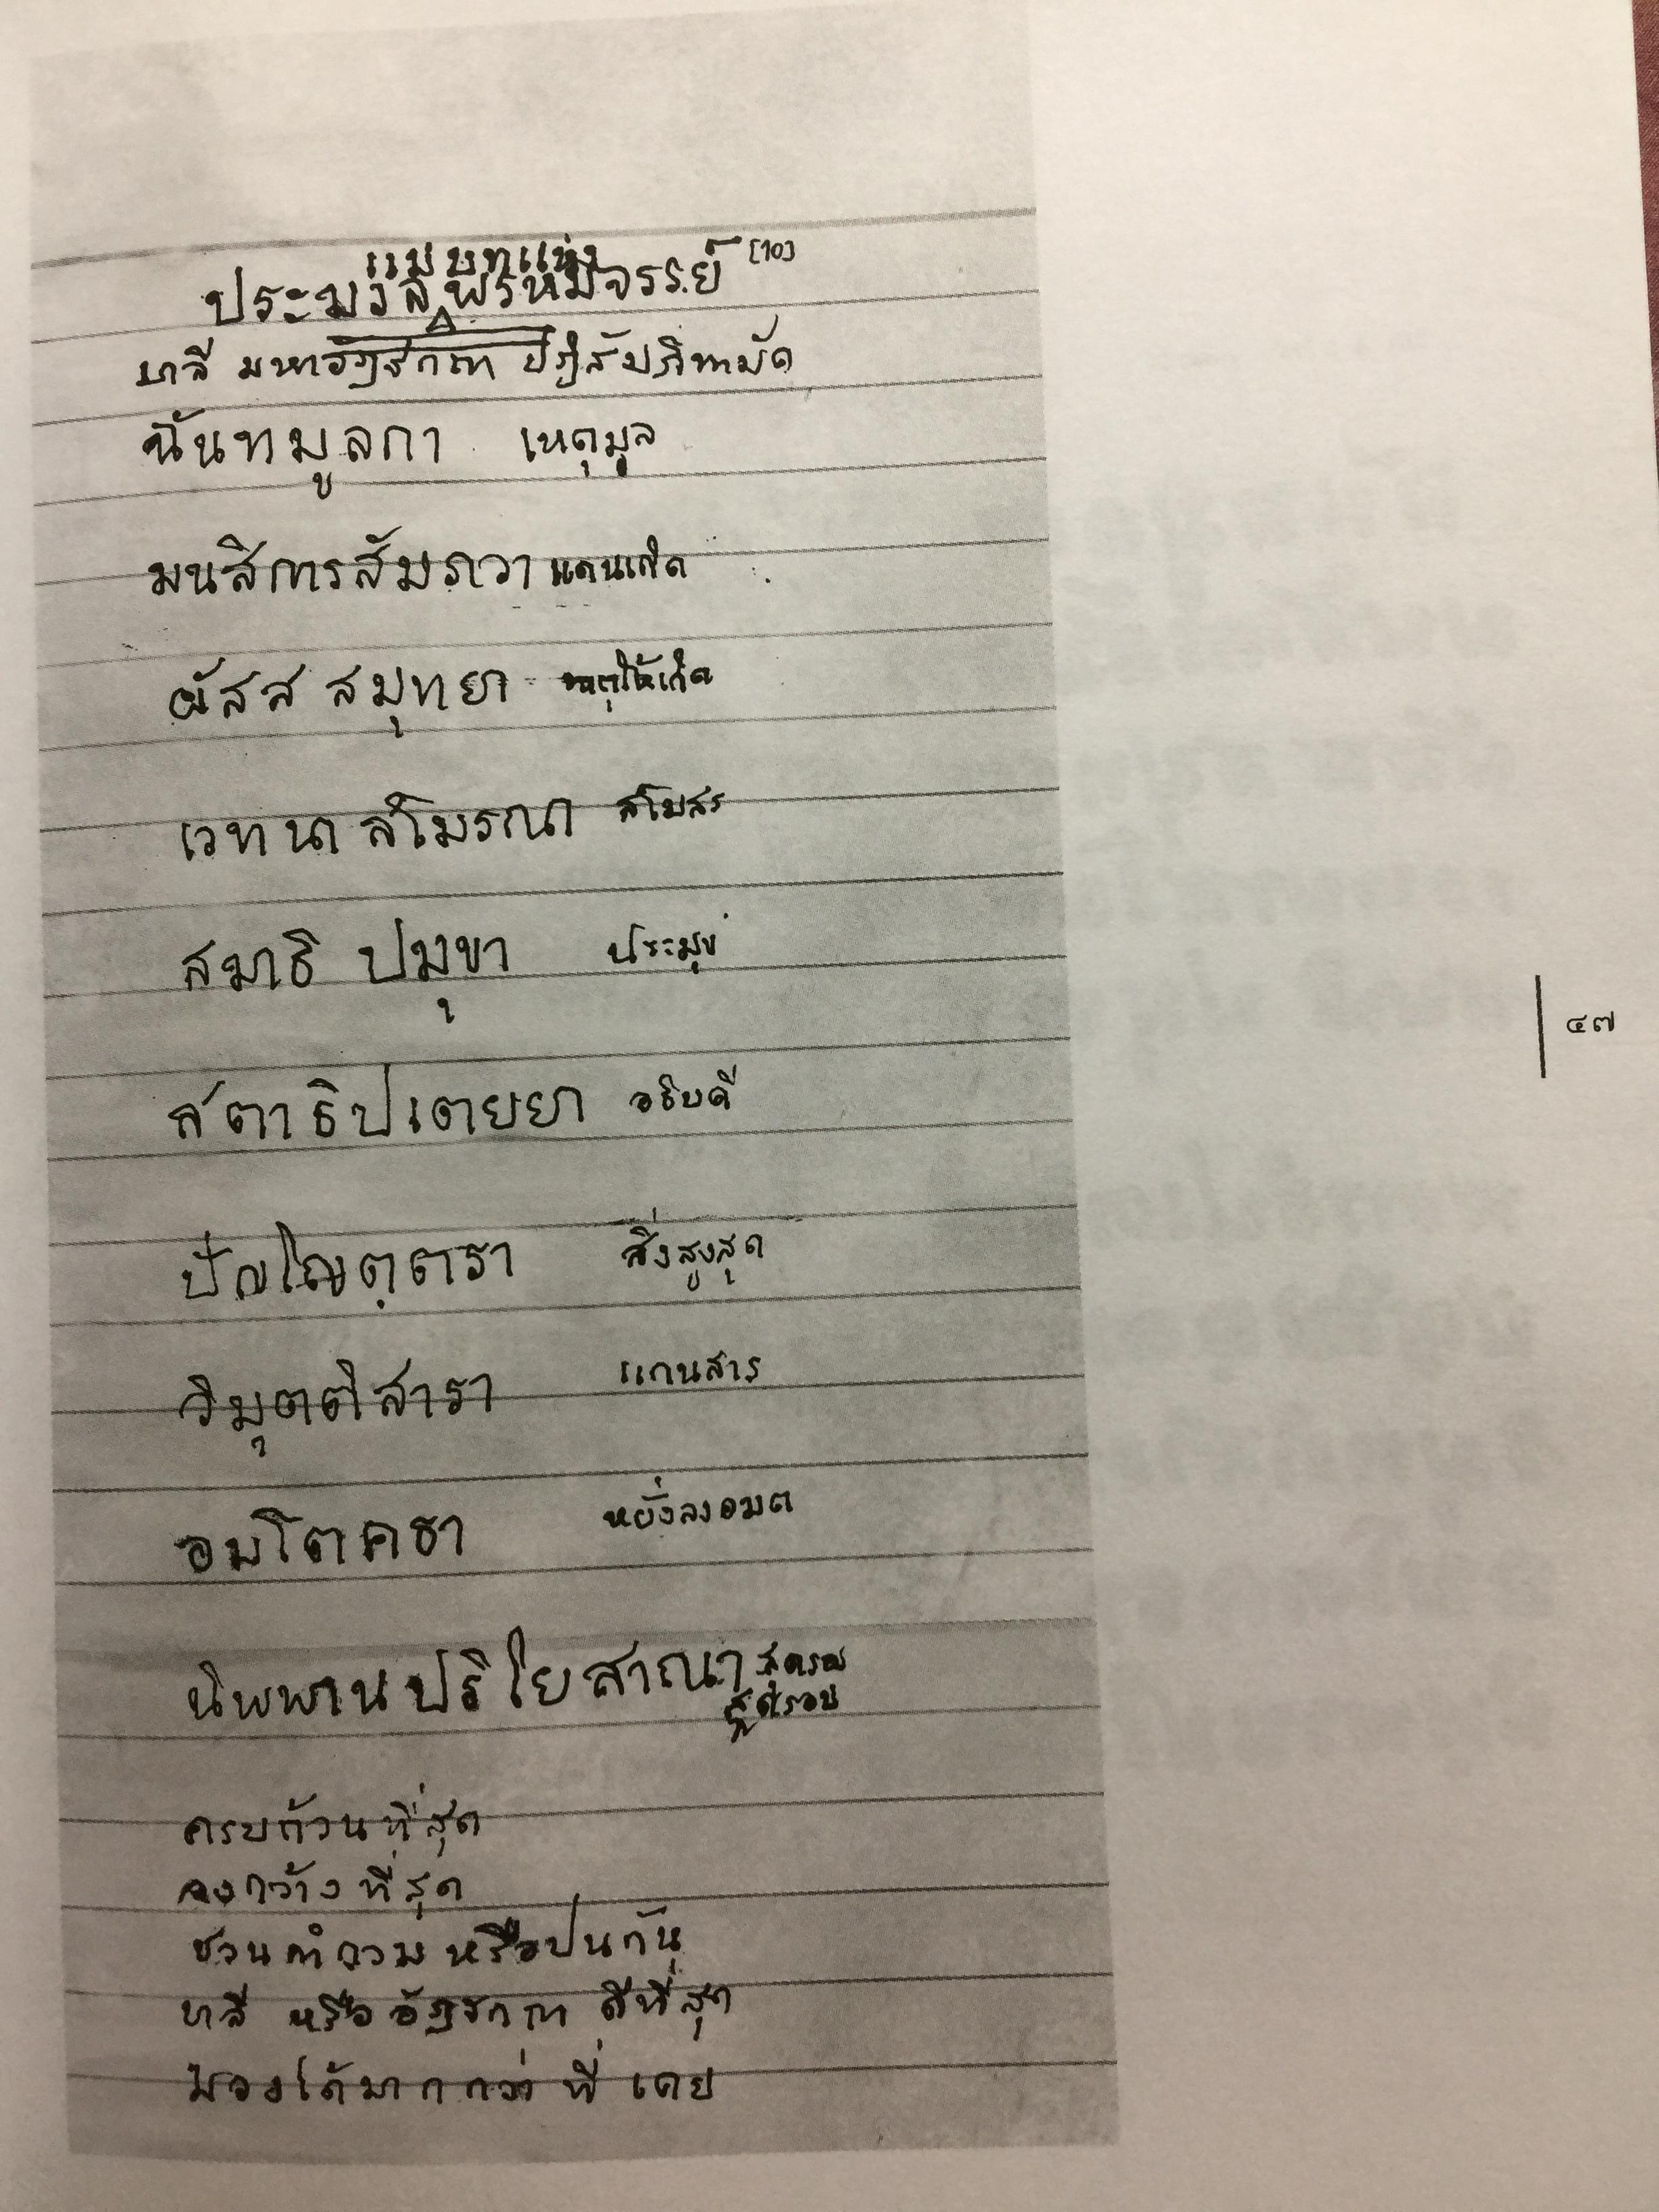 ประมวลแม่บทแห่งพรหมจรรย์ [10]
บาลี มหาอัฏฐกถา
ฉันทมูลกา เหตุมูล
มนสิการสัมภวา แดนเกิด
ผัสส สมุทยา เหตุให้เกิด
เวทนา สโมรณา สโมสร
สมาธิ ปมุขา ประมุข
สตาธิปเตยยา อธิบดี
ปัญโญตฺตรา สิ่งสูงสุด
วิมุตติสารา แก่นสาร
อมโตคธา หยั่งลงอมต
นิพพานปริโยสาณา
สุดรอบ
ครบถ้วนที่สุด
กว้าง ที่สุด
ชวน หรือปนกัน
บาลี หรือ อัฏฐกถา ดีที่สุด
มองได้มากกว่า ที่ เคย
๔๗